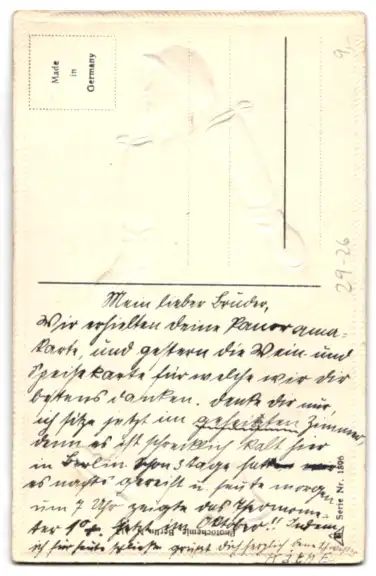 Made
in
Germany
9.
29-26
Mein lieber Bruder,
Wir erhielten deine Panorama-
karte, und gestern die Wein und
Speisekarte für welche wir dir
bestens danken. Denke dir nur,
ich sitze jetzt im geheizten Zimmer,
denn es ist schrecklich kalt hier
in Berlin schon 3 tage
es nachts gereift u. heute morgen
um 7 Uhr zeigte das Thermome-
ter 1° Jetzt im Oktober!! Indem
ich für heute schliesse grüsst dich herzlich
Photochemie Berlin
Serie Nr. 1806